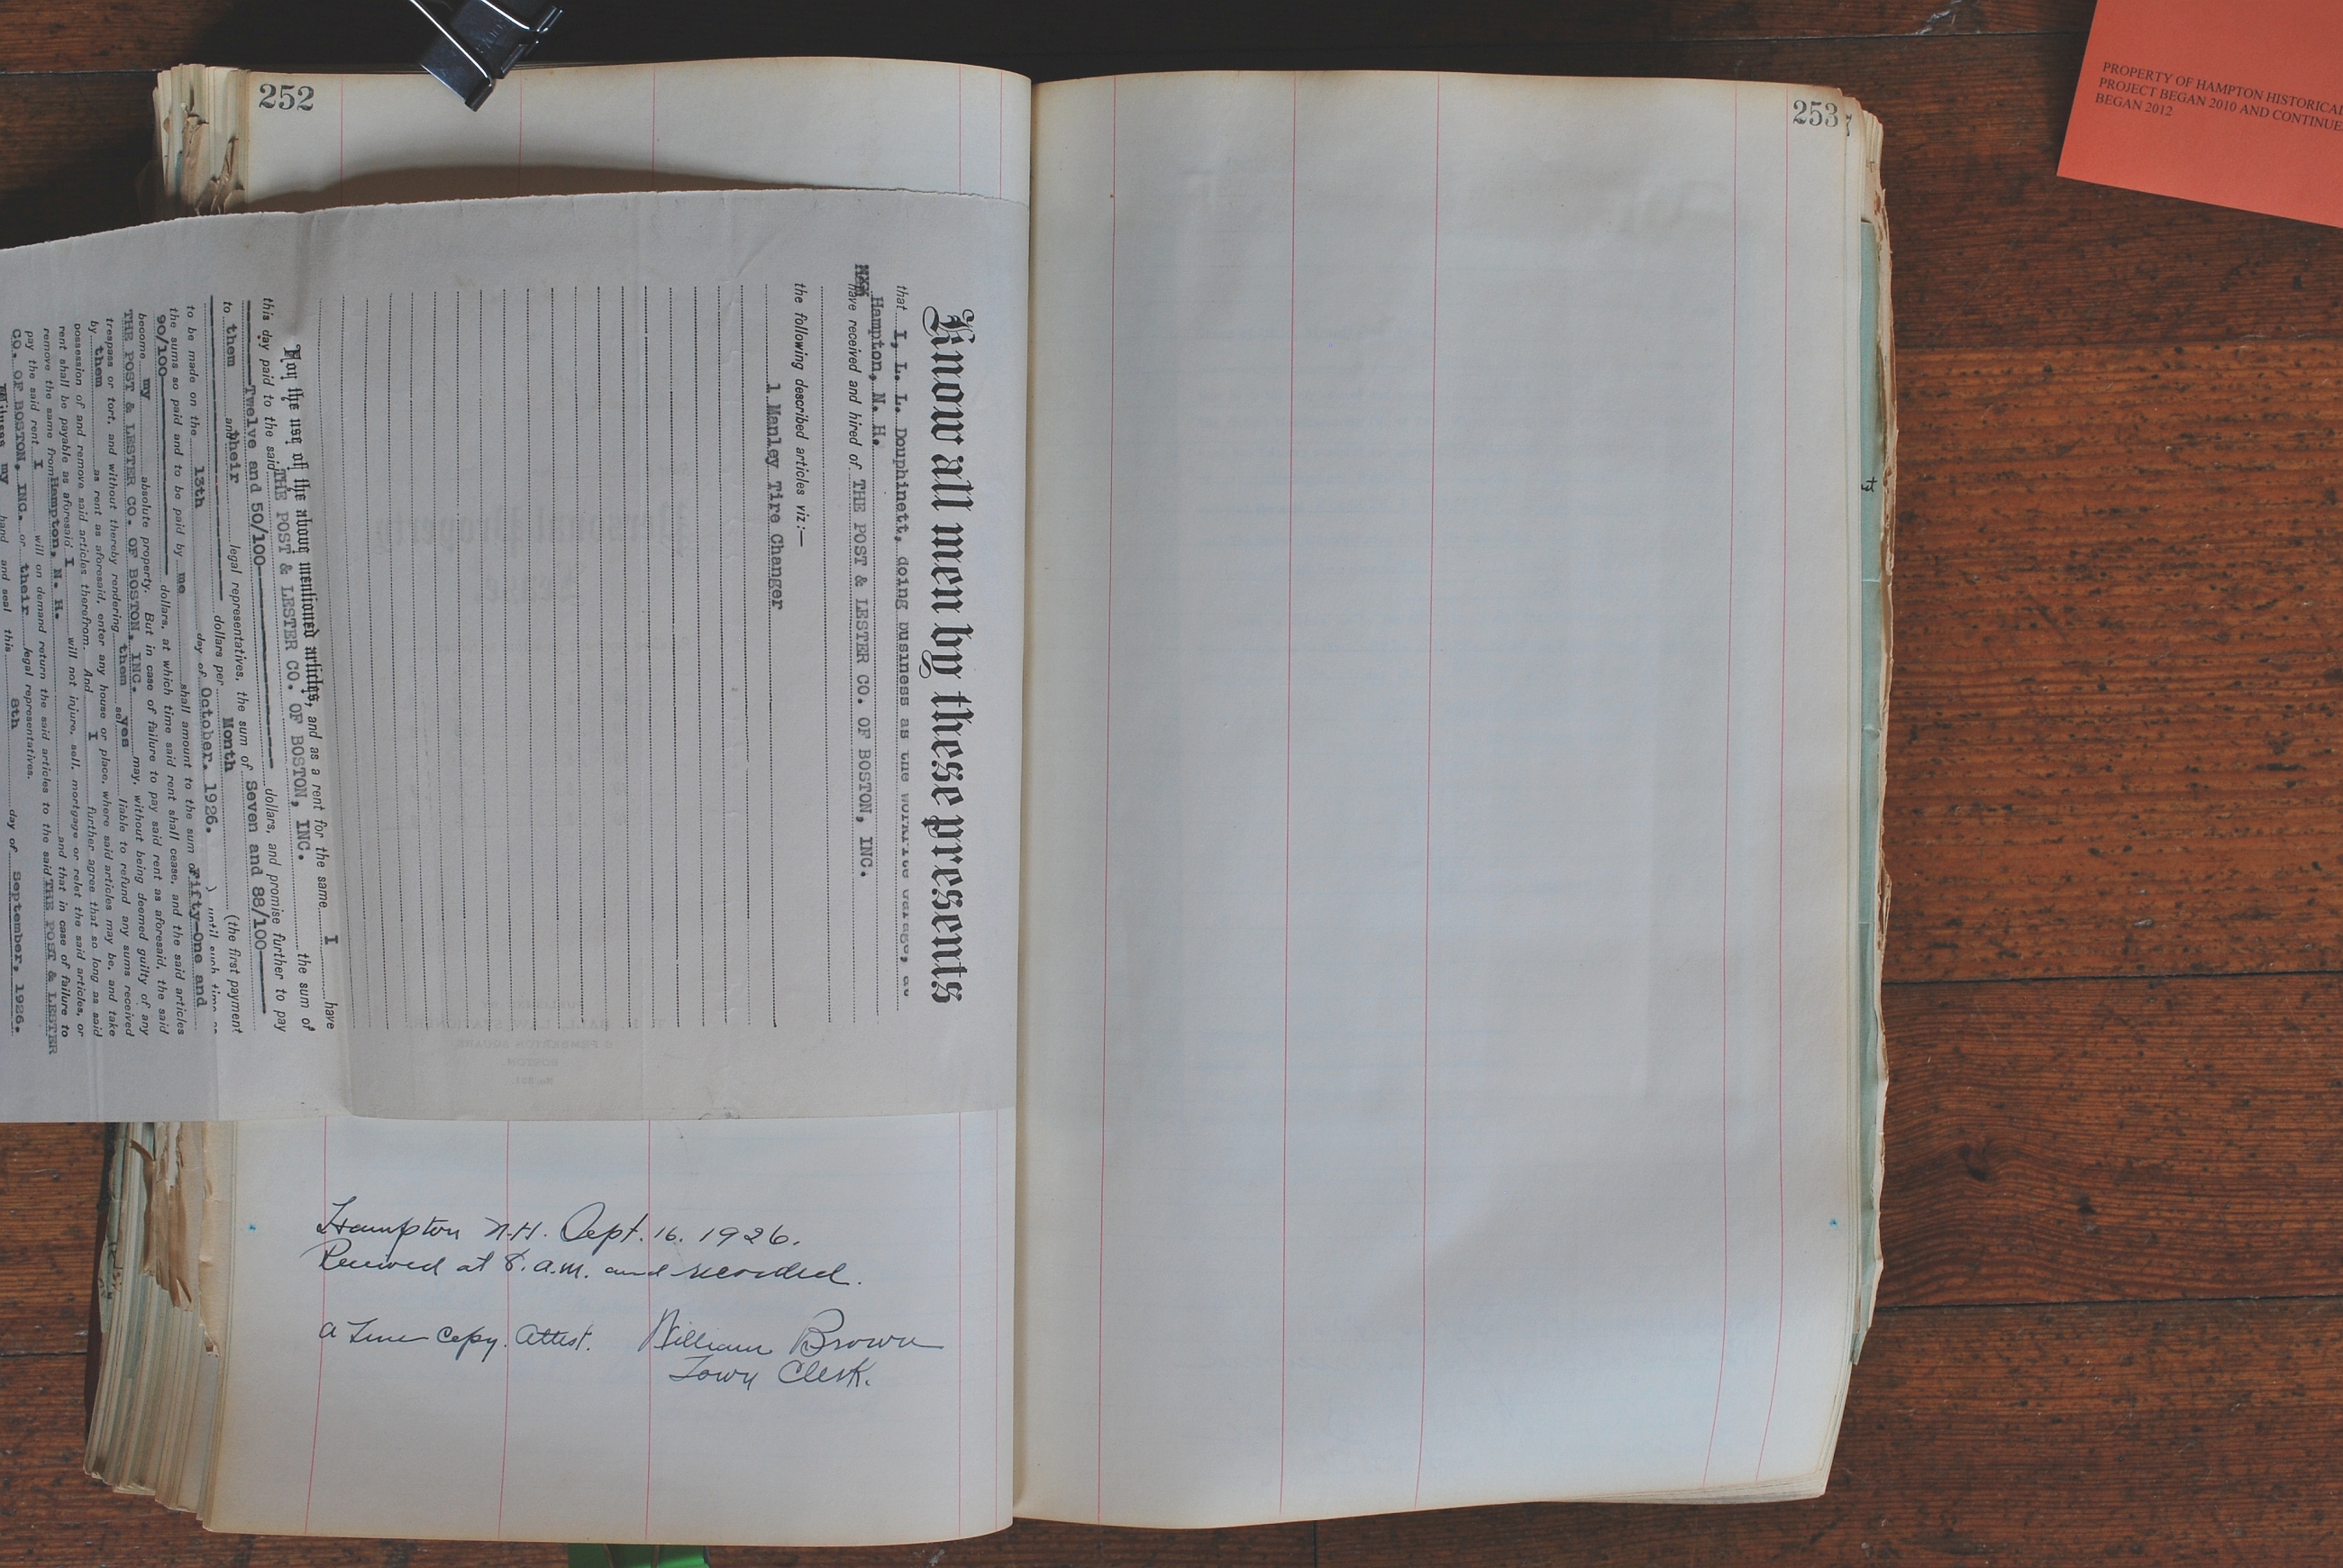 252
Know all men by these presents
that I, L. L. Douphinett, doing business as the Workrite Garage, at
Hampton, N. H.
have received and hired of THE POST & LESTER CO. OF BOSTON, INC.
the following described articles viz:—
1 Manley Tire Changer
For the use of the above mentioned articles, and as a rent for the same I have
this day paid to the said THE POST & LESTER CO. OF BOSTON, INC. the sum of
Twelve and 50/100 dollars, and promise further to pay
to them and their legal representatives, the sum of Seven and 88/100
dollars per Month (the first payment
to be made on the 13th day of October, 1926. ) until such time as
the sums so paid and to be paid by me shall amount to the sum of Fifty-One and
90/100 dollars, at which time said rent shall cease, and the said articles
become my absolute property. But in case of failure to pay said rent as aforesaid, the said
THE POST & LESTER CO. OF BOSTON, INC. may, without being deemed guilty of any
trespass or tort, and without thereby rendering them selves liable to refund any sums received
by them as rent as aforesaid, enter any house or place, where said articles may be, and take
possession of and remove said articles therefrom. And I further agree that so long as said
rent shall be payable as aforesaid I will not injure, sell, mortgage or relet the said articles, or
remove the same from Hampton, N. H. and that in case of failure to
pay the said rent I will on demand return the said articles to the said THE POST & LESTER
CO. OF BOSTON, INC. or their legal representatives.
Witness my hand and seal this 8th day of September, 1926.
Hampton N.H. Sept. 16. 1926.
Received at 8. a.m. and recorded.
A true copy. Attest. William Brown
Town Clerk.
253
PROPERTY OF HAMPTON HISTORICAL
PROJECT BEGAN 2010 AND CONTINUE
BEGAN 2012